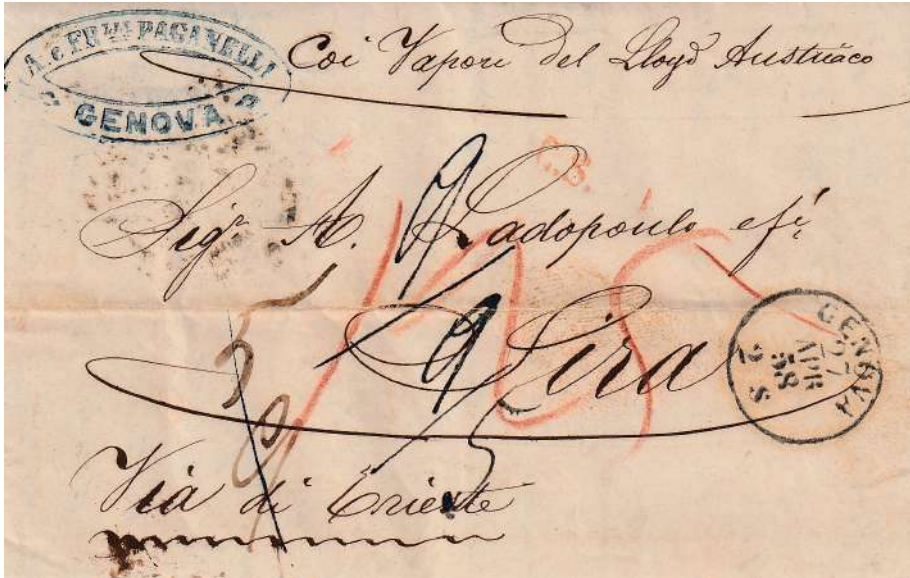 A. e FR.lli PAGANELLI
GENOVA
Coi Vapori del Lloyd Austriaco
C.B.
Sigr A. Ladopoulo e fi.
Sira
GENOVA
27
APR
58
2 S
Via di Trieste